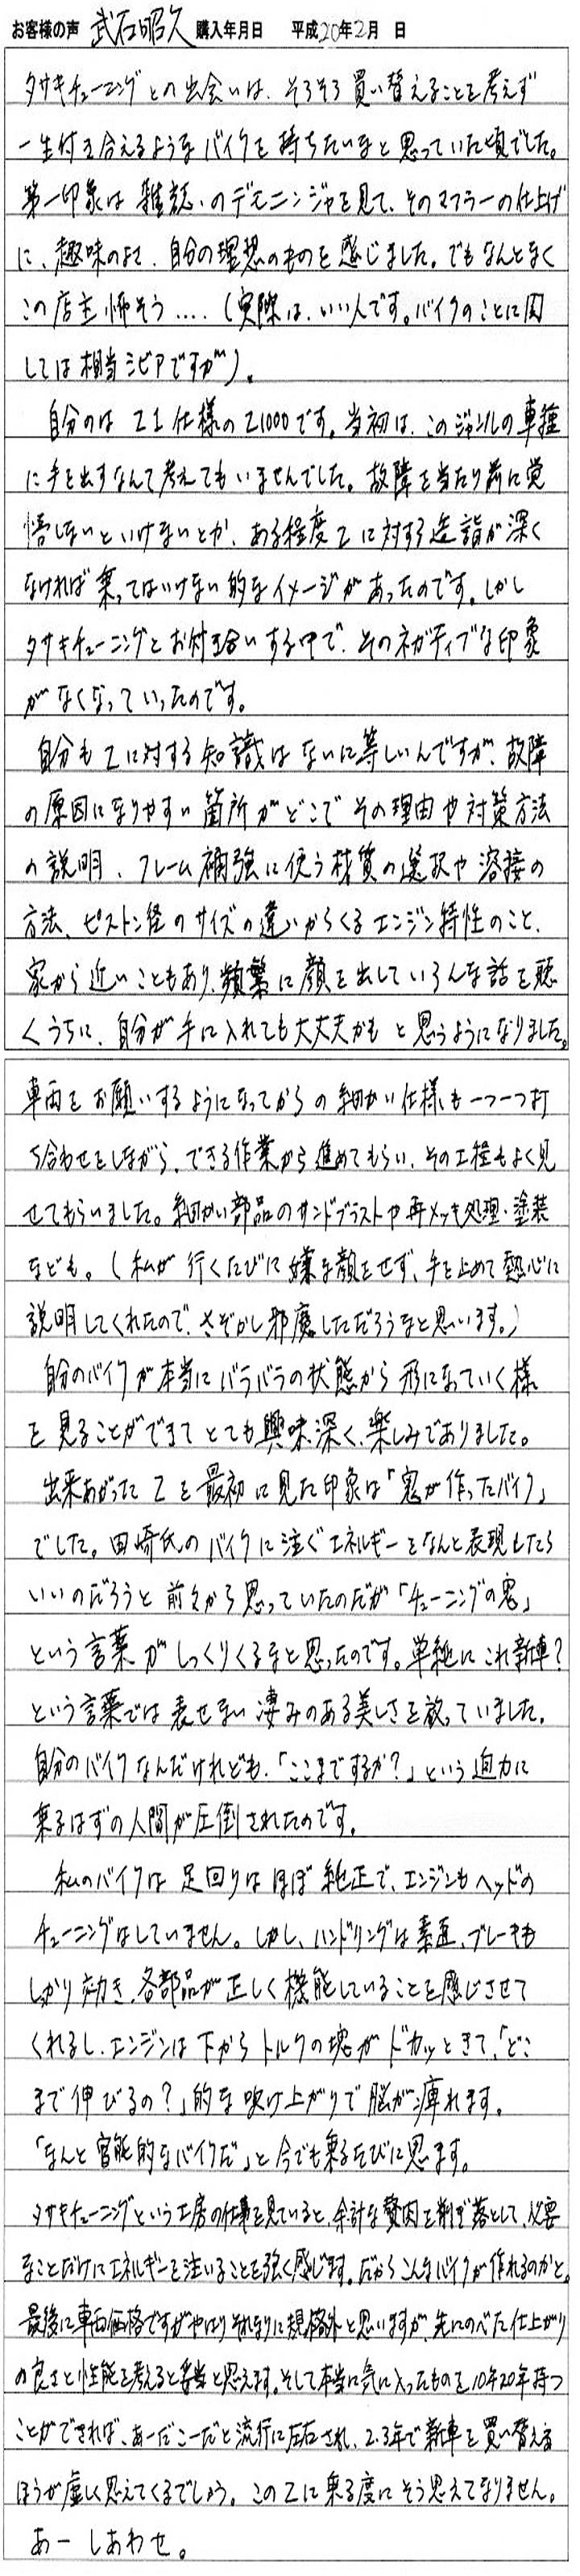 お客様の声 武石昭久 購入年月日 平成20年2月 日
タサキチューニングとの出会いは、そろそろ買い替えることを考えず
一生付き合えるようなバイクを持ちたいなと思っていた頃でした。
第一印象は雑誌のデモニンジャを見て、そのマフラーの仕上げ
に、趣味のよさ、自分の理想のものを感じました。でもなんとなく
この店主怖そう‥‥(実際は、いい人です。バイクのことに関
しては相当シビアですが)。
自分のは Z1仕様のZ1000です。当初は、このジャンルの車種
に手を出すなんて考えてもいませんでした。故障を当たり前に覚
悟しないといけないとか、ある程度Zに対する造詣が深く
なければ乗ってはいけない的なイメージがあったのです。しかし
タサキチューニングとお付き合いする中で、そのネガティブな印象
がなくなっていったのです。
自分もZに対する知識はないに等しいんですが、故障
の原因になりやすい箇所がどこでその理由や対策方法
の説明、フレーム補強に使う材質の選択や溶接の
方法、ピストン径のサイズの違いからくるエンジン特性のこと、
家から近いこともあり、頻繁に顔を出していろんな話を聴
くうちに、自分が手に入れても大丈夫かもと思うようになりました。
車両をお願いするようになってからの細かい仕様も一つ一つ打
ち合わせをしながら、できる作業から進めてもらい、その工程もよく見
せてもらいました。細かい部品のサンドブラストや再メッキ処理・塗装
なども。(私が行くたびに嫌な顔をせず、手を止めて熱心に
説明してくれたので、さぞかし邪魔しただろうなと思います。)
自分のバイクが本当にバラバラの状態から形になっていく様
を見ることができてとても興味深く、楽しみでありました。
出来あがったZを最初に見た印象は「鬼が作ったバイク」
でした。田崎氏のバイクに注ぐエネルギーをなんと表現したら
いいのだろうと前々から思っていたのだが「チューニングの鬼」
という言葉がしっくりくるなと思ったのです。単純にこれ新車?
という言葉では表せない凄みのある美しさを放っていました。
自分のバイクなんだけれども、「ここまでするか?」という迫力に
乗るはずの人間が圧倒されたのです。
私のバイクは足回りはほぼ純正で、エンジンもヘッドの
チューニングはしていません。しかし、ハンドリングは素直、ブレーキも
しっかり効き、各部品が正しく機能していることを感じさせて
くれるし、エンジンは下からトルクの塊がドカッときて、「どこ
まで伸びるの?」的な吹け上がりで脳が痺れます。
「なんと官能的なバイクだ」と今でも乗るたびに思ます。
タサキチューニングという工房の仕事を見ていると、余計な贅肉を削ぎ落として、必要
なことだけにエネルギーを注いることを強く感じます。だからこんなバイクが作れるのかと。
最後に車両価格ですがやはりそれなりに規格外と思いますが、先にのべた仕上がり
の良さと性能を考えると妥当と思えます。そして本当に気に入ったものを10年20年持つ
ことができれば、あーだこーだと流行に左右され、2.3年で新車を買い替える
ほうが虚しく思えてくるでしょう。このZに乗る度にそう思えてなりません。
あー しあわせ。